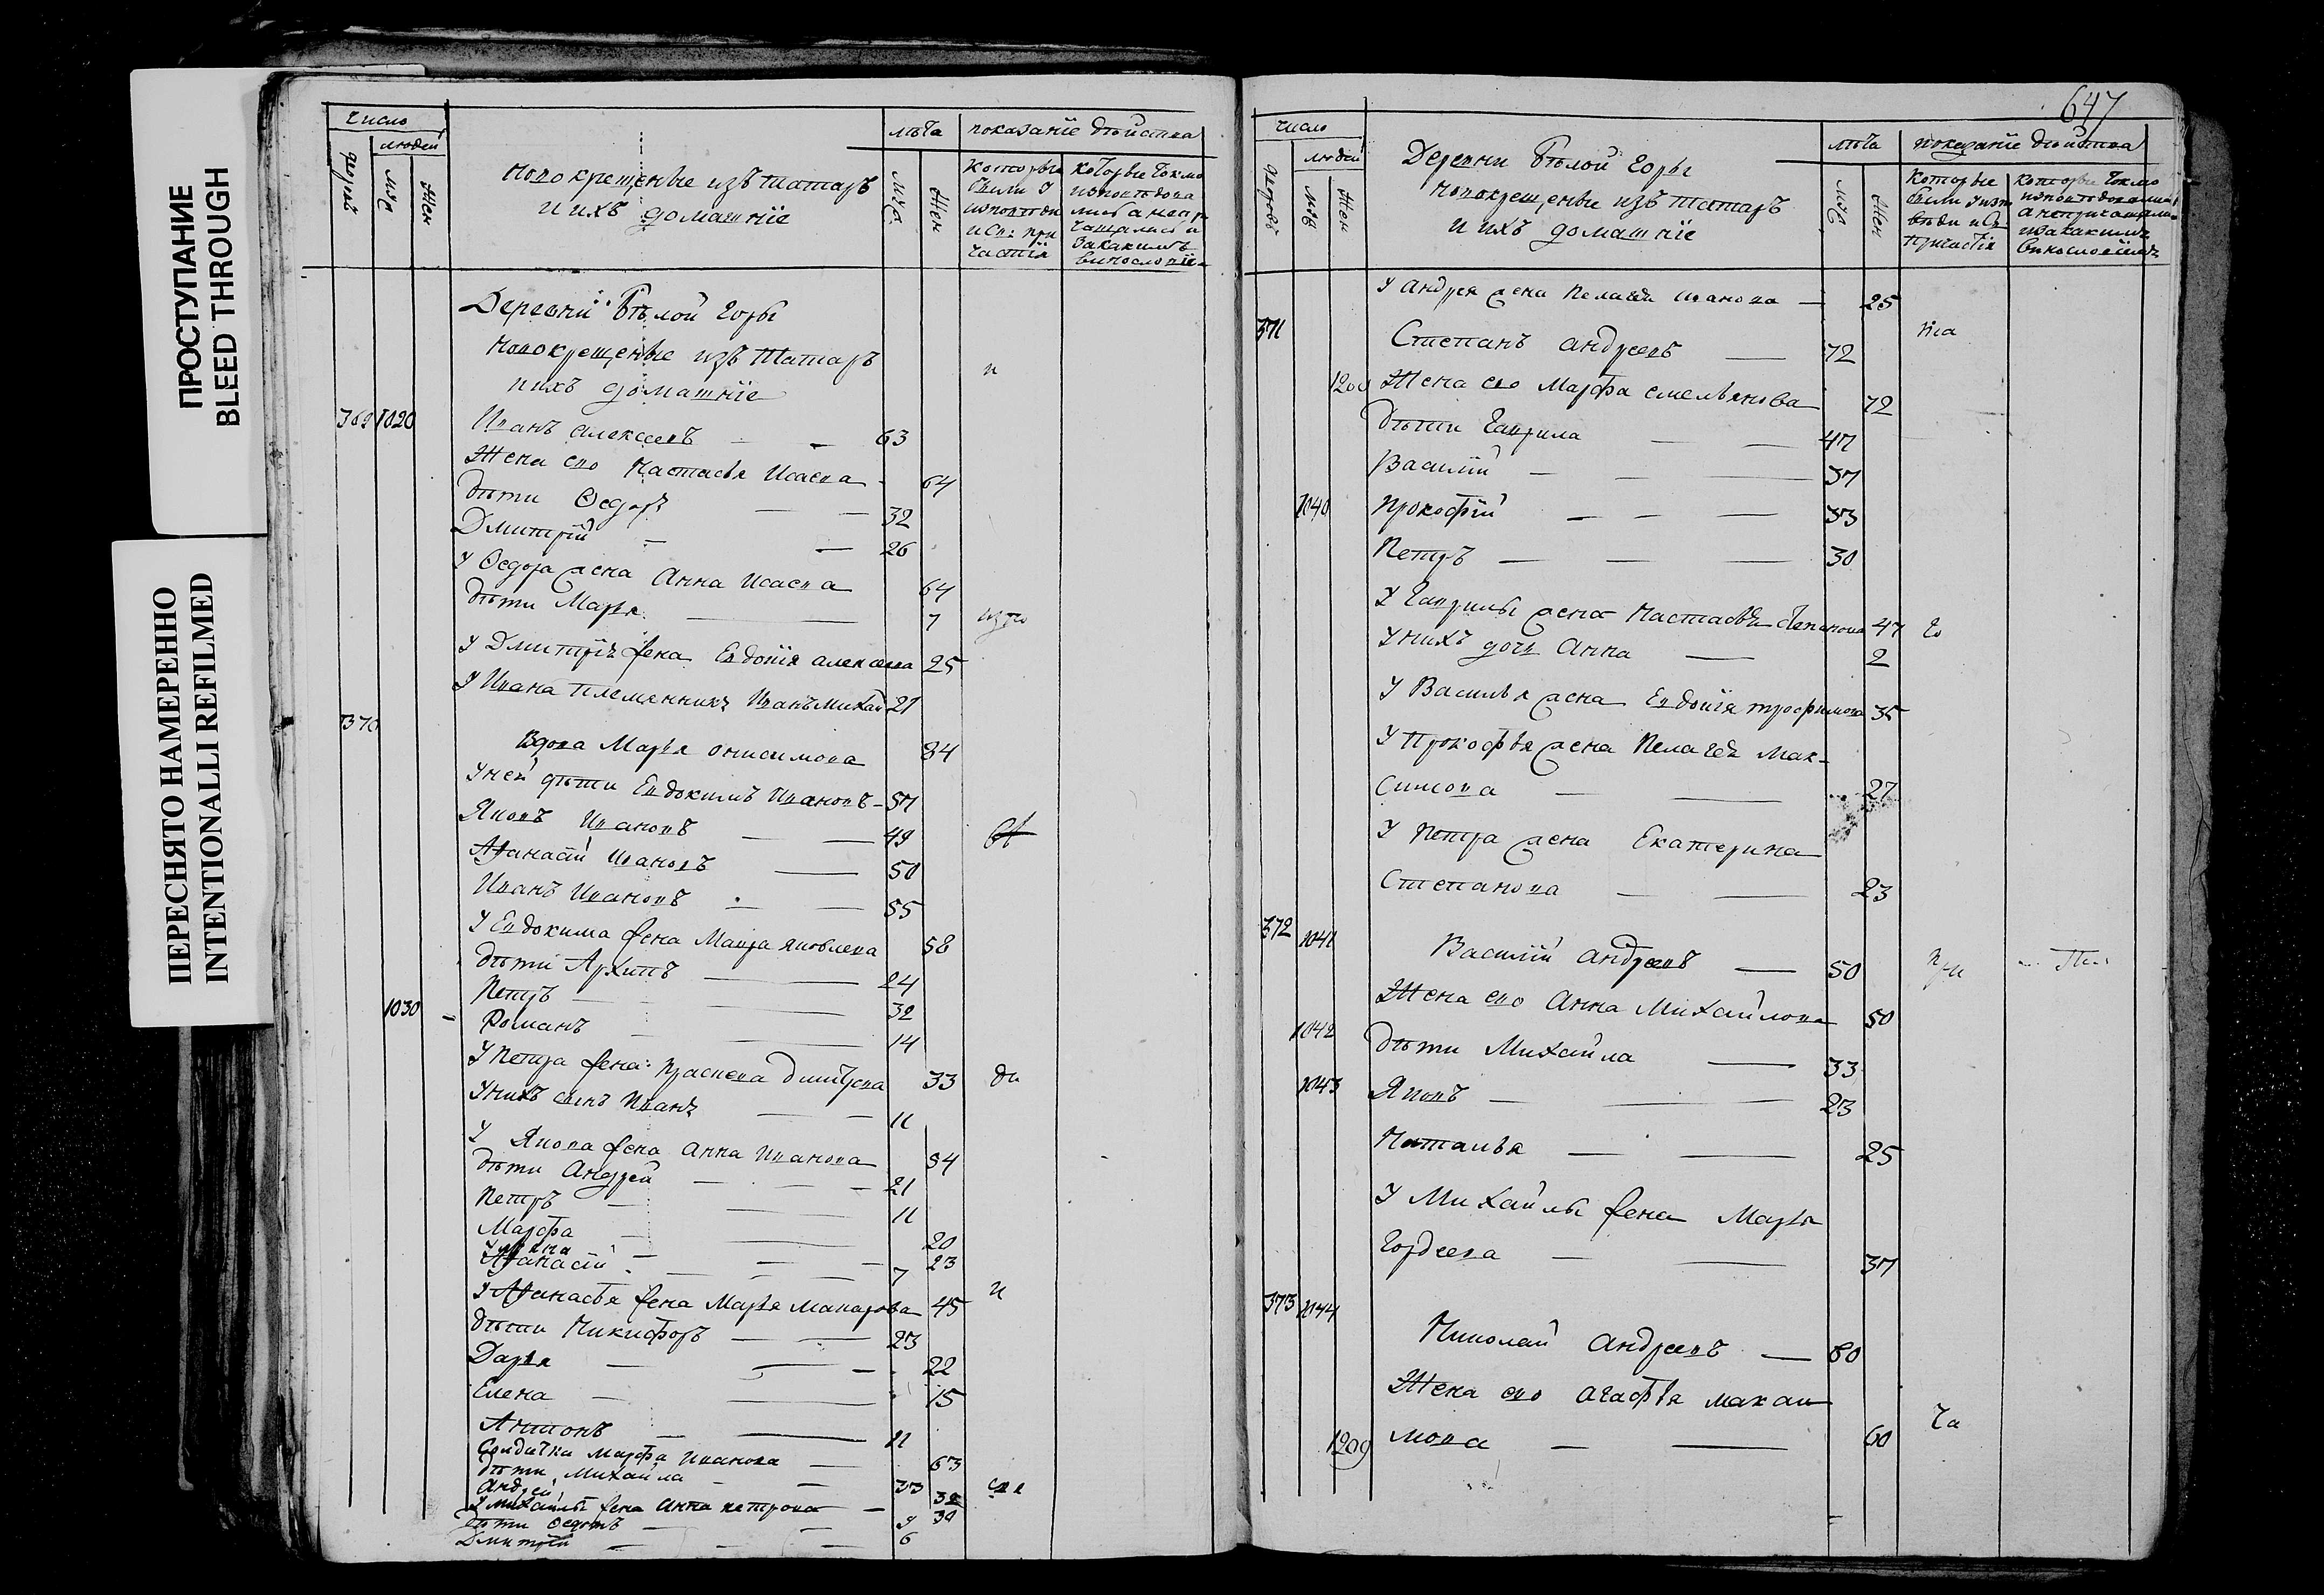 ПРОСТУПАНИЕ
BLEED THROUGH
ПЕРЕСНЯТО НАМЕРЕННО
INTENTIONALLI REFILMED
число
людей
муж
жен
новокрещеные изъ татаръ
и ихъ домашнїе
лѣта
муж
жен
показанїе дѣйства
Деревни Бѣлой Горы
новокрещеные изъ татаръ
и ихъ домашнїе
369 1020 Иванъ Алексеевъ 63
Жена ево Настасья Исаева 64
дѣти Ѳедоръ 32
Дмитрїй 26
У Ѳедора жена Анна Исаева 64
дѣти Марья 7
У Дмитрїя жена Евдокїя Алексеева 25
У Ивана племянникъ Иванъ Михай 21
370
Вдова Марья Онисимова 84
У ней дѣти Евдокимъ Ивановъ 57
Яковъ Ивановъ 49
Аѳанасїй Ивановъ 50
Иванъ Ивановъ 55
У Евдокима жена Мавра Яковлева 58
дѣти Архипъ 24
Петръ 32
1030 Романъ 14
У Петра жена Прасковья Дмитрева 33
У нихъ сынъ Иванъ 11
У Якова жена Анна Иванова 84
дѣти Андрей 21
Петръ 11
Марфа 20
23
Аѳанасїй 7
У Аѳанасья жена Марья Макарова 45
дѣти Никифоръ 23
Дарья 22
Елена 15
Антонъ 11
Солдатка Марфа Иванова 63
дѣти Михайла 33
Андрей 32
У Михайлы жена Анна Петрова 30
дѣти Ѳедотъ 9
Дмитрїй 6
647
число
людей
муж
жен
Деревни Бѣлой Горы
новокрещеные изъ татаръ
и ихъ домашнїе
лѣта
муж
жен
показанїе дѣйства
У Андрея жена Пелагея Иванова 25
371
Степанъ Андреевъ 72
1200 Жена ево Марфа Емельянова 72
дѣти Гаврила 47
Василїй 37
1040 Прокофїй 33
Петръ 30
У Гаврилы жена Настасья Степанова 47
У нихъ дочь Анна 2
У Василья жена Евдокїя Трофимова 35
У Прокофья жена Пелагея Мак-
симова 27
У Петра жена Екатерина
Степанова 23
372 1041
Василїй Андреевъ 50
Жена ево Анна Михайлова 50
1042 дѣти Михайла 33
1043 Яковъ 23
Наталья 25
У Михайлы жена Марья
Гордеева 37
373 1044
Николай Андреевъ 80
Жена ево Агафья Макси
1209 мова 60